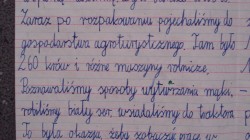 Zaraz po rozpakowaniu pojechaliśmy do
gospodarstwa agroturystycznego. Tam było
260 krów i różne maszyny rolnicze.
Poznawaliśmy sposoby wytwarzania mąki,
robiliśmy biały ser, wsiadaliśmy do traktora.
To była okazja, żeby zobaczyć pracę w